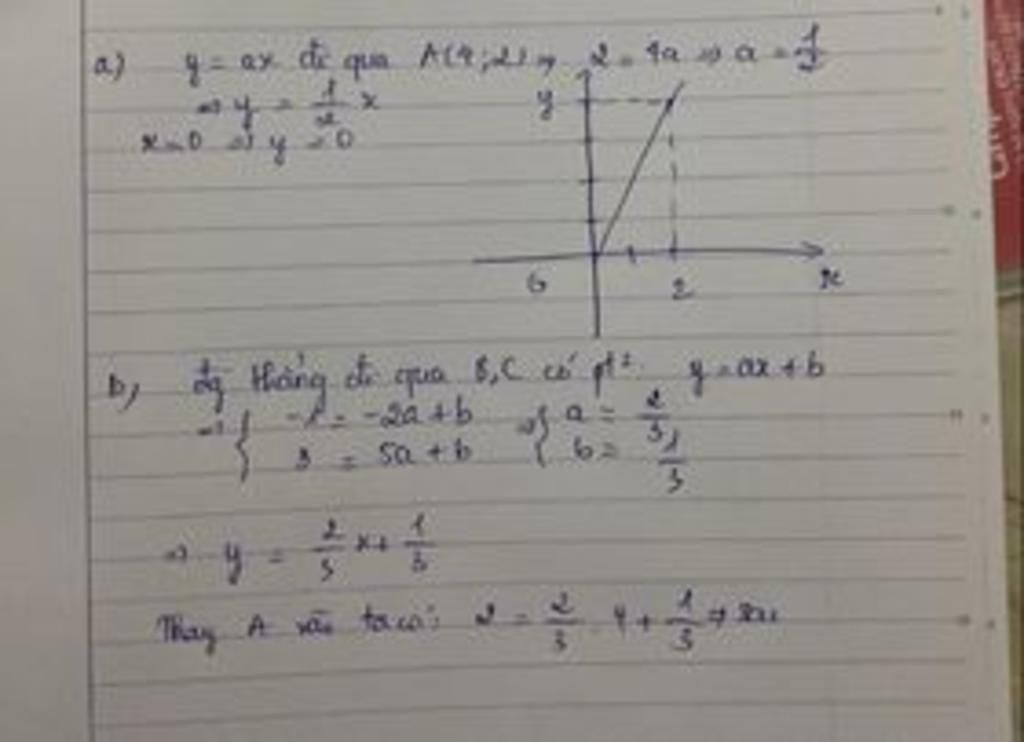 a) y = ax đi qua A(4;2) ⇒ 2 = 4a ⇒ a = 1/2
⇒ y = 1/2 x
x=0 ⇒ y = 0
y
6 2 x
b, đg thẳng đi qua B,C có pt: y = ax + b
⇒ { -1 = -2a + b ⇒ { a = 2/3
3 = 5a + b b = 1/3
⇒ y = 2/3 x + 1/3
Thay A vào ta có: 2 = 2/3 . 4 + 1/3 ⇒ sai